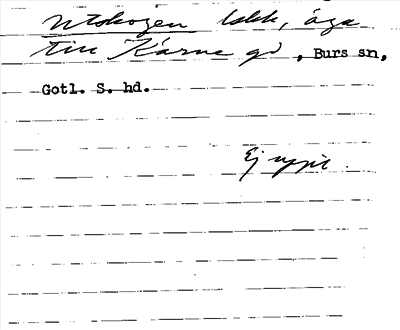 Utskogen labk, äga
till Kärne gd, Burs sn,
Gotl. S. hd.
Ej uppt.